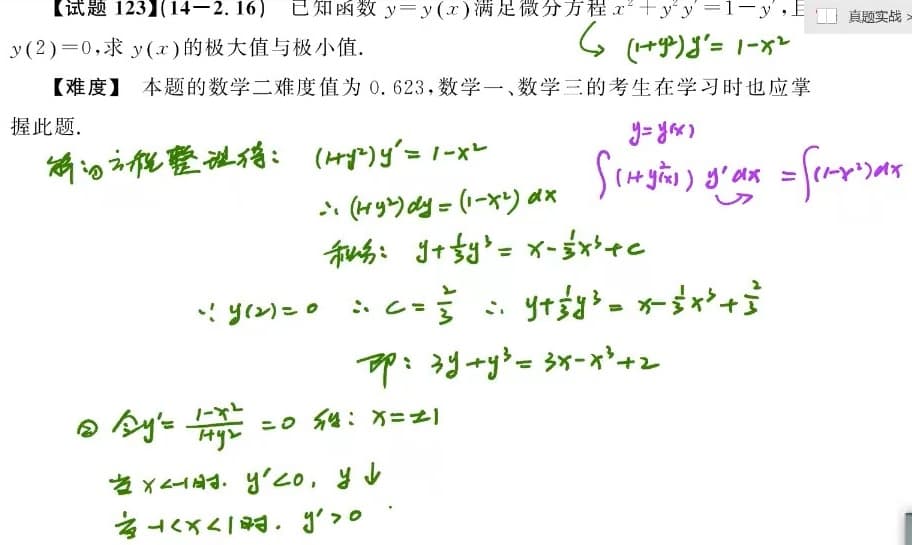 【试题 123】(14-2.16) 已知函数 y=y(x)满足微分方程 x²+y²y′=1-y′,且
真题实战 >
y(2)=0,求 y(x)的极大值与极小值.
(1+y²)y′= 1-x²
【难度】 本题的数学二难度值为 0.623,数学一、数学三的考生在学习时也应掌
握此题.
y=y(x)
解:① 方程整理得: (1+y²)y′= 1-x²
∫(1+y²(x)) y′dx = ∫(1-x²)dx
∴ (1+y²)dy = (1-x²) dx
积分: y+⅓y³ = x-⅓x³+C
∵ y(2)=0 ∴ C = 2/3 ∴ y+⅓y³ = x-⅓x³+2/3
即: 3y+y³ = 3x-x³+2
② 令y′= (1-x²)/(1+y²) =0 得: x=±1
当 x<-1时. y′<0, y↓
当 -1<x<1时. y′>0